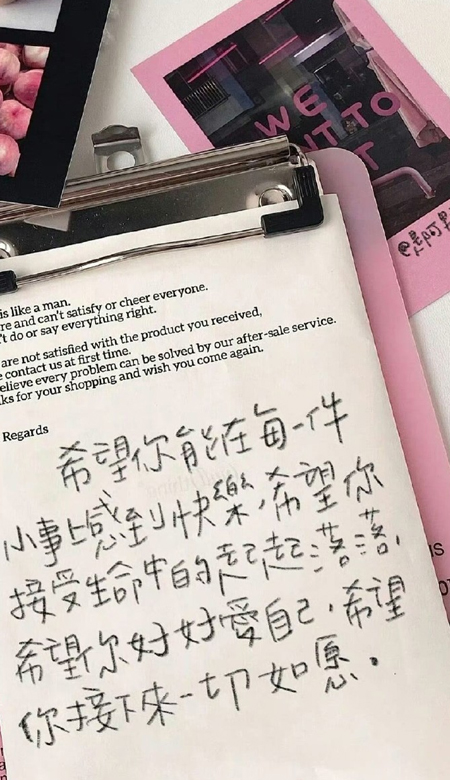 WE
TO
is like a man.
re and can't satisfy or cheer everyone.
't do or say everything right.
are not satisfied with the product you received,
contact us at first time.
elieve every problem can be solved by our after-sale service.
ks for your shopping and wish you come again.
Regards
希望你能在每一件
小事上感到快樂,希望你
接受生命中的起起落落,
希望你好好愛自己,希望
你接下來一切如愿.